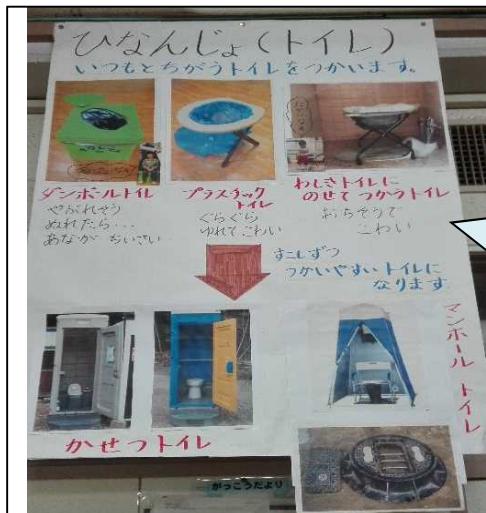 ひなんじょ(トイレ)
いつもとちがうトイレをつかいます。
ダンボールトイレ
やぶれそう
ぬれたら…
あなが ちいさい
プラスチック
トイレ
ぐらぐら
ゆれてこわい
わしきトイレに
のせて つかうトイレ
おちそうで
こわい
すこしずつ
つかいやすいトイレに
なります
かせつトイレ
マンホール トイレ
がっこうだより